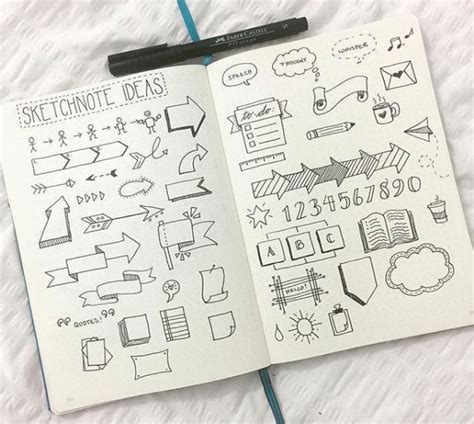 FABER CASTELL
S
SKETCHNOTE IDEAS
QUOTES!
SPEECH
THOUGHT
WHISPER
to-do:
1234567890
A B C
HELLO!